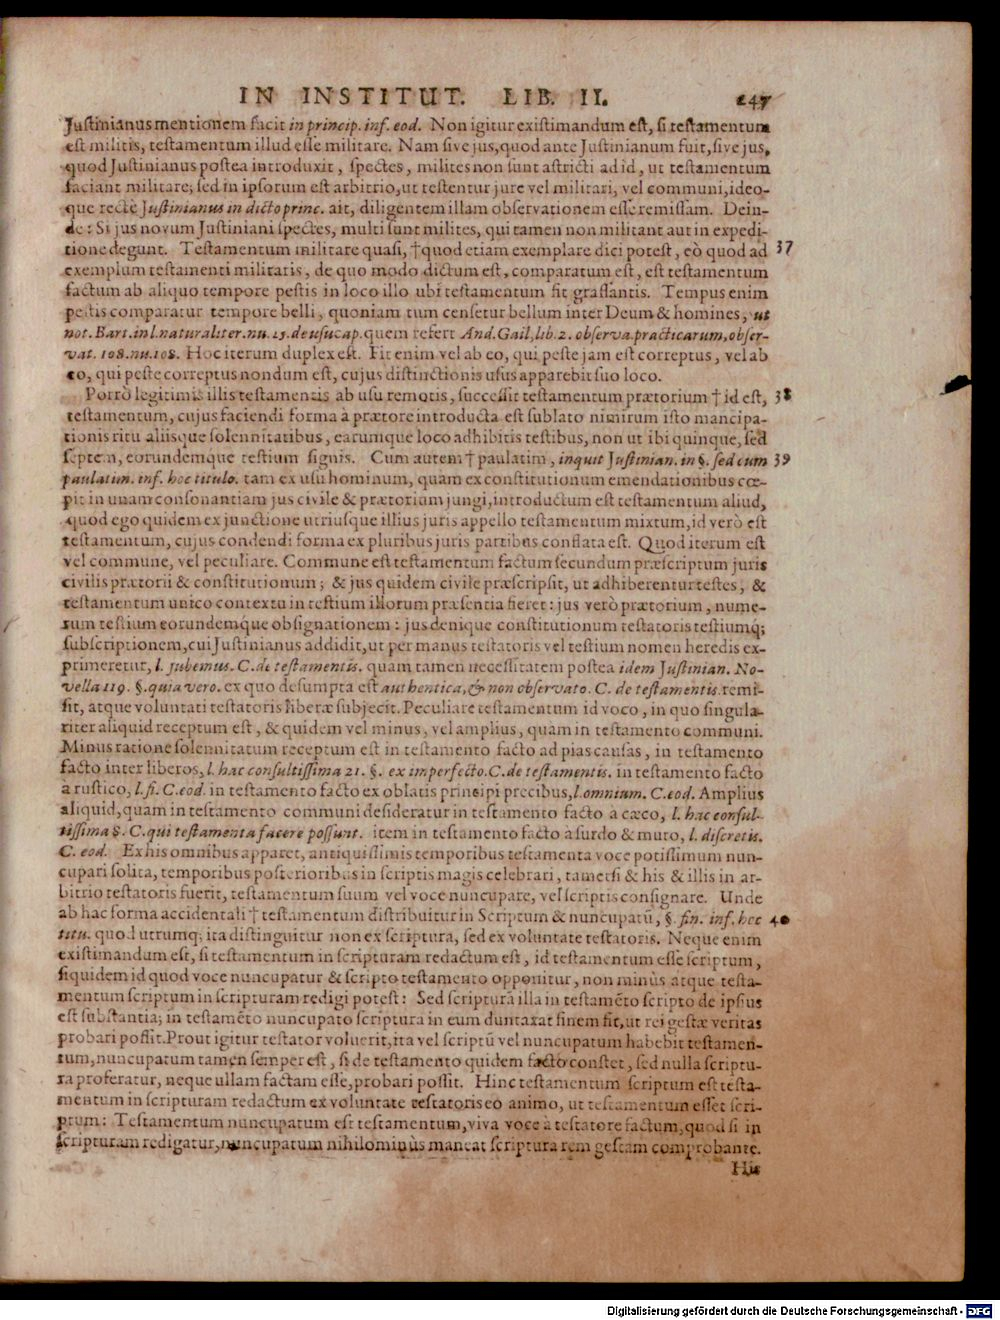 IN INSTITUT. LIB. II. 247
Justinianus mentionem facit in princip. inf. eod. Non igitur existimandum est, si testamentum
est militis, testamentum illud esse militare. Nam sive jus, quod ante Justinianum fuit, sive jus,
quod Justinianus postea introduxit, spectes, milites non sunt astricti ad id, ut testamentum
faciant militare; sed in ipsorum est arbitrio, ut testentur jure vel militari, vel communi, ideo-
que rectè Justinianus in dicto princ. ait, diligentem illam observationem esse remissam. Dein-
de: Si jus novum Justiniani spectes, multi sunt milites, qui tamen non militant aut in expedi-
tione degunt. Testamentum militare quasi, †quod etiam exemplare dici potest, eò quod ad 37
exemplum testamenti militaris, de quo modo dictum est, comparatum est, est testamentum
factum ab aliquo tempore pestis in loco illo ubi testamentum fit grassantis. Tempus enim
pestis comparatur tempore belli, quoniam tum censetur bellum inter Deum & homines, ut
not. Bart. in l. naturaliter. nu. 15. de usucap. quem refert And. Gail, lib. 2. observa. practicarum, obser-
vat. 108. nu. 108. Hoc iterum duplex est. Fit enim vel ab eo, qui peste jam est correptus, vel ab
eo, qui peste correptus nondum est, cujus distinctionis usus apparebit suo loco.
Porrò legitimis illis testamentis ab usu remotis, successit testamentum prætorium † id est, 38
testamentum, cujus faciendi forma à prætore introducta est sublato nimirum isto mancipa-
tionis ritu aliisque solennitatibus, earumque loco adhibitis testibus, non ut ibi quinque, sed
septem, eorundemque testium signis. Cum autem † paulatim, inquit Justinian. in §. sed cum 39
paulatim. inf. hoc titulo. tam ex usu hominum, quam ex constitutionum emendationibus cœ-
pit in unam consonantiam jus civile & prætorium jungi, introductum est testamentum aliud,
quod ego quidem ex junctione utriusque illius juris appello testamentum mixtum, id verò est
testamentum, cujus condendi forma ex pluribus juris partibus conflata est. Quod iterum est
vel commune, vel peculiare. Commune est testamentum factum secundum præscriptum juris
civilis prætorii & constitutionum; & jus quidem civile præscripsit, ut adhiberentur testes, &
testamentum unico contextu in testium illorum præsentia fieret: jus verò prætorium, nume-
rum testium eorundemque obsignationem: jus denique constitutionum testatoris testiumq;
subscriptionem, cui Justinianus addidit, ut per manus testatoris vel testium nomen heredis ex-
primeretur, l. jubemus. C. de testamentis. quam tamen necessitatem postea idem Justinian. No-
vella 119. §. quia vero. ex quo desumpta est authentica, & non observato. C. de testamentis. remi-
sit, atque voluntati testatoris liberæ subjecit. Peculiare testamentum id voco, in quo singula-
riter aliquid receptum est, & quidem vel minus, vel amplius, quam in testamento communi.
Minus ratione solennitatum receptum est in testamento facto ad pias causas, in testamento
facto inter liberos, l. hac consultissima 21. §. ex imperfecto. C. de testamentis. in testamento facto
à rustico, l. fi. C. eod. in testamento facto ex oblatis principi precibus, l. omnium. C. eod. Amplius
aliquid, quam in testamento communi desideratur in testamento facto à cæco, l. hac consul-
tissima 8. C. qui testamenta facere possunt. item in testamento facto à surdo & muto, l. discretis.
C. eod. Ex his omnibus apparet, antiquissimis temporibus testamenta voce potissimum nun-
cupari solita, temporibus posterioribus in scriptis magis celebrari, tametsi & his & illis in ar-
bitrio testatoris fuerit, testamentum suum vel voce nuncupare, vel scriptis consignare. Unde
ab hac forma accidentali † testamentum distribuitur in Scriptum & nuncupatū, §. fin. inf. hoc 40
titu. quod utrumq; ita distinguitur non ex scriptura, sed ex voluntate testatoris. Neque enim
existimandum est, si testamentum in scripturam redactum est, id testamentum esse scriptum,
siquidem id quod voce nuncupatur & scripto testamento opponitur, non minùs atque testa-
mentum scriptum in scripturam redigi potest: Sed scripturā illa in testamēto scripto de ipsius
est substantia; in testamēto nuncupato scriptura in eum duntaxat finem fit, ut rei gestæ veritas
probari possit. Prout igitur testator voluerit, ita vel scriptū vel nuncupatum habebit testamen-
tum, nuncupatum tamen semper est, si de testamento quidem facto constet, sed nulla scriptu-
ra proferatur, neque ullam factam esse, probari possit. Hinc testamentum scriptum est testa-
mentum in scripturam redactum ex voluntate testatoris eo animo, ut testamentum esset scri-
ptum: Testamentum nuncupatum est testamentum, viva voce à testatore factum, quod si in
scripturam redigatur, nuncupatum nihilominùs maneat scriptura rem gestam comprobante.
His
Digitalisierung gefördert durch die Deutsche Forschungsgemeinschaft - DFG